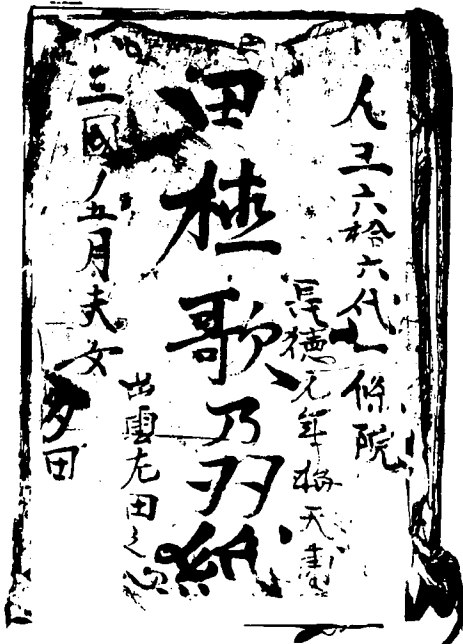 人王六拾六代一條院
長徳元年
田植歌乃双紙
出雲左田之
三國ノ五月夫女
多田